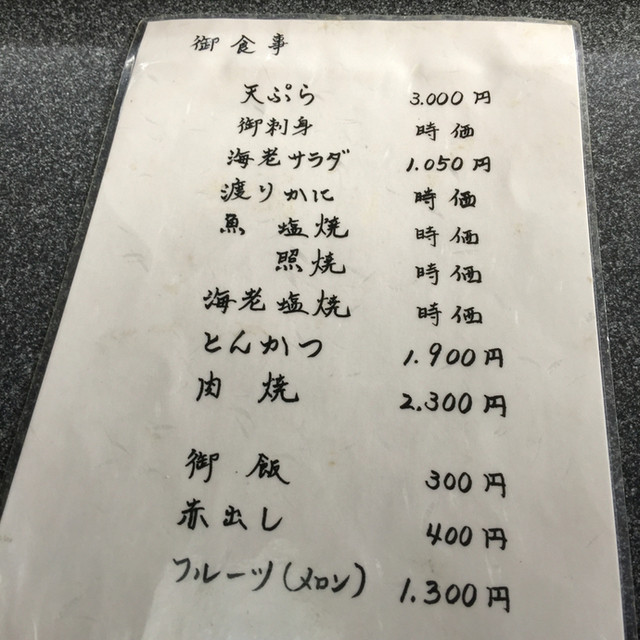 御食事
天ぷら 3.000円
御刺身 時価
海老サラダ 1.050円
渡りかに 時価
魚 塩焼 時価
照焼 時価
海老塩焼 時価
とんかつ 1.900円
肉焼 2.300円
御飯 300円
赤出し 400円
フルーツ(メロン) 1.300円